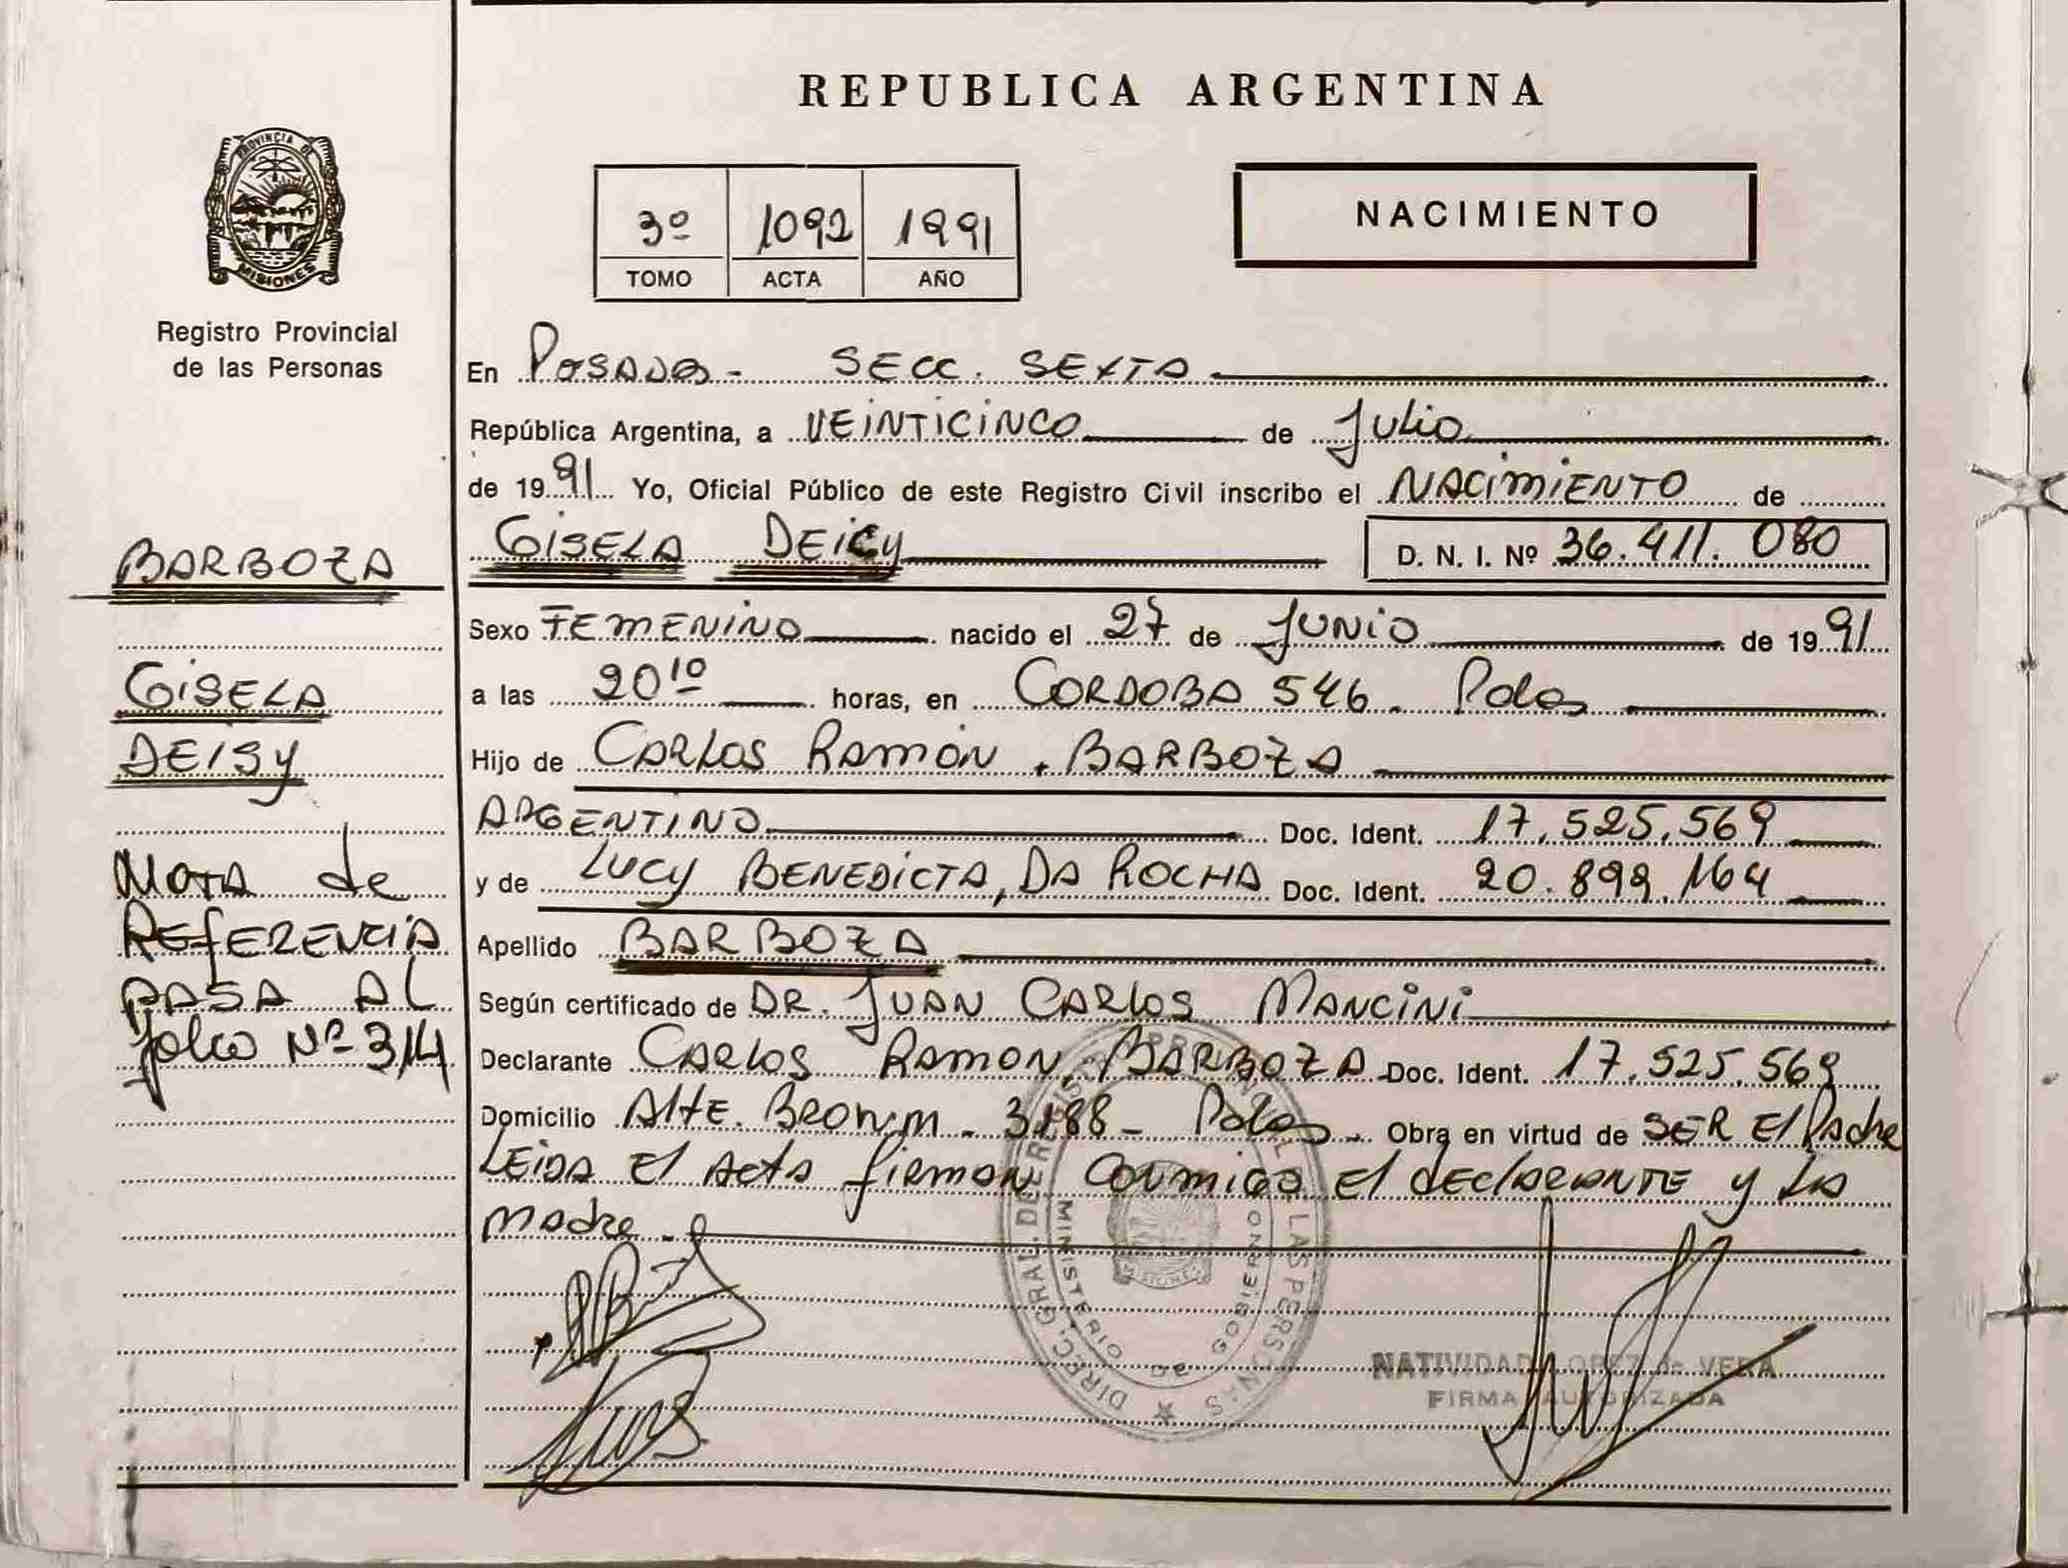 REPUBLICA ARGENTINA
PROVINCIA DE
MISIONES
Registro Provincial
de las Personas
3º 1092 1991
TOMO ACTA AÑO
NACIMIENTO
En Posadas - SECC. SEXTA
República Argentina, a VEINTICINCO de Julio
de 1991 Yo, Oficial Público de este Registro Civil inscribo el NACIMIENTO de
GISELA DEICY D. N. I. Nº 36.411.080
Sexo FEMENINO nacido el 27 de JUNIO de 1991
a las 20 10 horas, en CORDOBA 546. Pdas
Hijo de CARLOS RAMON, BARBOZA
ARGENTINO Doc. Ident. 17.525.569
y de LUCY BENEDICTA, DA ROCHA Doc. Ident. 20.899.164
Apellido BARBOZA
Según certificado de DR. JUAN CARLOS MANCINI
Declarante CARLOS RAMON, BARBOZA Doc. Ident. 17.525.569
Domicilio Alte. Brown - 3188 - Pdas - Obra en virtud de SER El Padre
LEIDA El Acta firman conmigo El dEclARANTE y LA
madre.
BARBOZA
GISELA
DEISY
NOTA de
REfERENCIA
PASA AL
folio Nº 314
DIREC. GRAL. DEL REGISTRO PROVINCIAL DE LAS PERSONAS
MINISTERIO DE GOBIERNO
MISIONES
NATIVIDAD LOPEZ de VERA
FIRMA AUTORIZADA